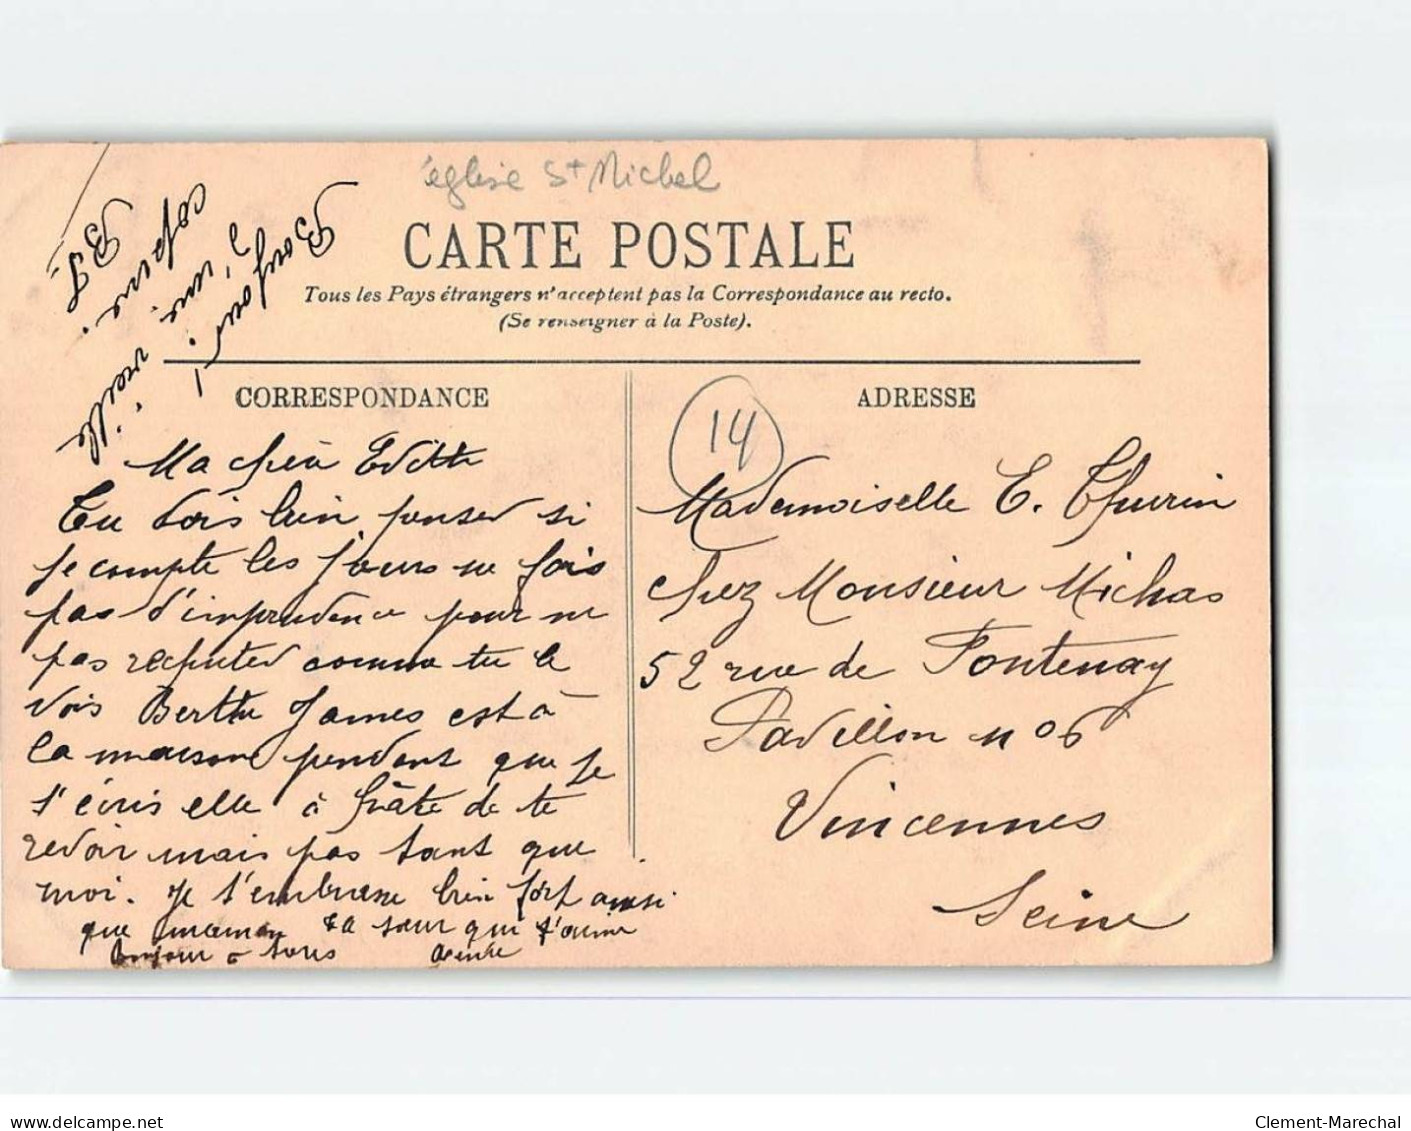 église St Michel
CARTE POSTALE
Tous les Pays étrangers n'acceptent pas la Correspondance au recto.
(Se renseigner à la Poste).
Bonjour !
d'une vieille
copine.
B J
CORRESPONDANCE
ADRESSE
14
Ma chère Edith
Tu dois bien penser si
je compte les jours ne fais
pas d'imprudence pour ne
pas rechuter comme tu le
vois Berthe James est à
la maison pendant que je
t'écris elle à hâte de te
revoir mais pas tant que
moi. Je t'embrasse bien fort ainsi
que maman ta sœur qui t'aime
Bonjour à tous
Mademoiselle E. Thurin
chez Monsieur Michas
52 rue de Fontenay
Pavillon n° 6
Vincennes
Seine
delcampe.net
Clement-Marechal